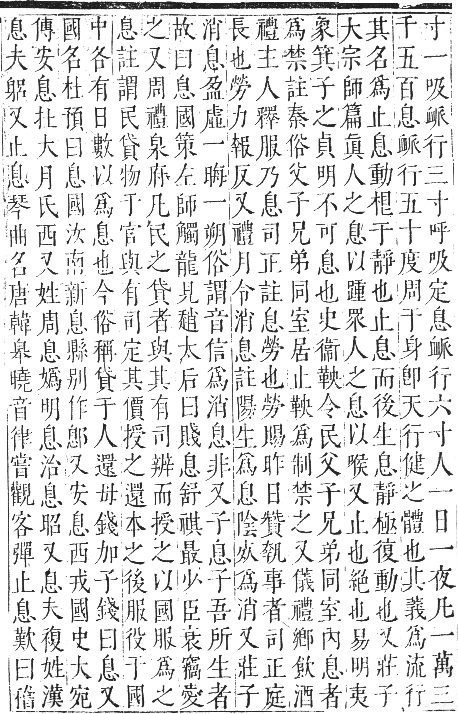 寸一吸脈行三寸呼吸定息脈行六寸人一日一夜凡一萬三
千五百息脈行五十度周于身卽天行健之體也其義爲流行
其名爲止息動相于靜也止息而後生息靜極復動也又莊子
大宗師篇眞人之息以踵眾人之息以喉又止也絶也易明夷
象箕子之貞明不可息也史衞鞅令民父子兄弟同室內息者
爲禁註秦俗父子兄弟同室居止鞅爲制禁之又儀禮鄉飲酒
禮主人釋服乃息司正註息勞也勞賜昨日贊執事者司正庭
長也勞力報反又禮月令消息註陽生爲息陰死爲消又莊子
消息盈虛一晦一朔俗謂音信爲消息非又子息子吾所生者
故曰息國策左師觸龍見趙太后曰賤息舒祺最少臣衰竊愛
之又周禮泉府凡民之貸者與其有司辨而授之以國服爲之
息註謂民貸物于官與有司定其價授之還本之後服役于國
中各有日數以爲息也今俗稱貸于人還母錢加子錢曰息又
國名杜預曰息國汝南新息縣別作鄎又安息西戎國史大宛
傳安息壯大月氏西又姓周息嬀明息治息昭又息夫複姓漢
息夫躬又止息琴曲名唐韓臯曉音律嘗觀客彈止息歎曰